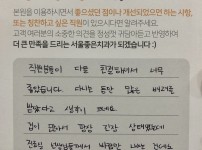 본원을 이용하시면서 좋으셨던 점이나 개선되었으면 하는 사항,
또는 칭찬하고 싶은 직원이 있으시다면 말해주세요.
고객 여러분의 소중한 의견을 정성껏 귀담아듣고 반영하여
더 큰 만족을 드리는 서울좋은치과가 되겠습니다 :)
직원분들이 다들 친절하셔서 너무
좋았습니다. 다니는 동안 많은 배려를
받았다고 생각이 드네요
겁이 많아서 항상 긴장 상태였는데